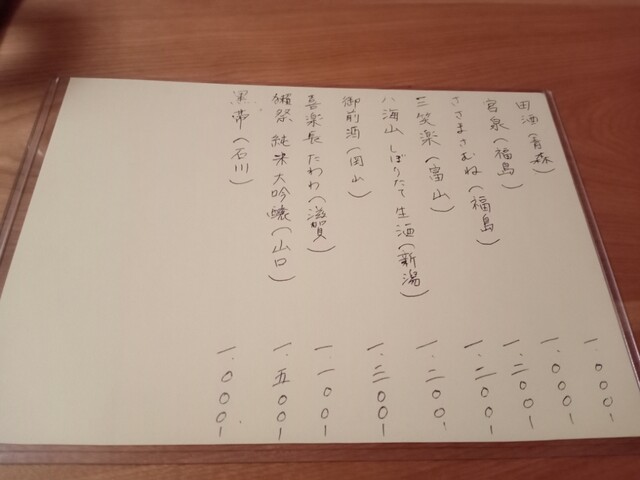 田酒(青森) 一.〇〇〇-
宮泉(福島) 一.〇〇〇-
ささまさむね(福島) 一.二〇〇-
三笑楽(富山) 一.二〇〇-
八海山 しぼりたて 生酒(新潟) 一.二〇〇-
御前酒(岡山)
喜楽長 たわわ(滋賀) 一.一〇〇-
獺祭 純米大吟醸(山口) 一.五〇〇-
黒帯(石川) 一.〇〇〇-